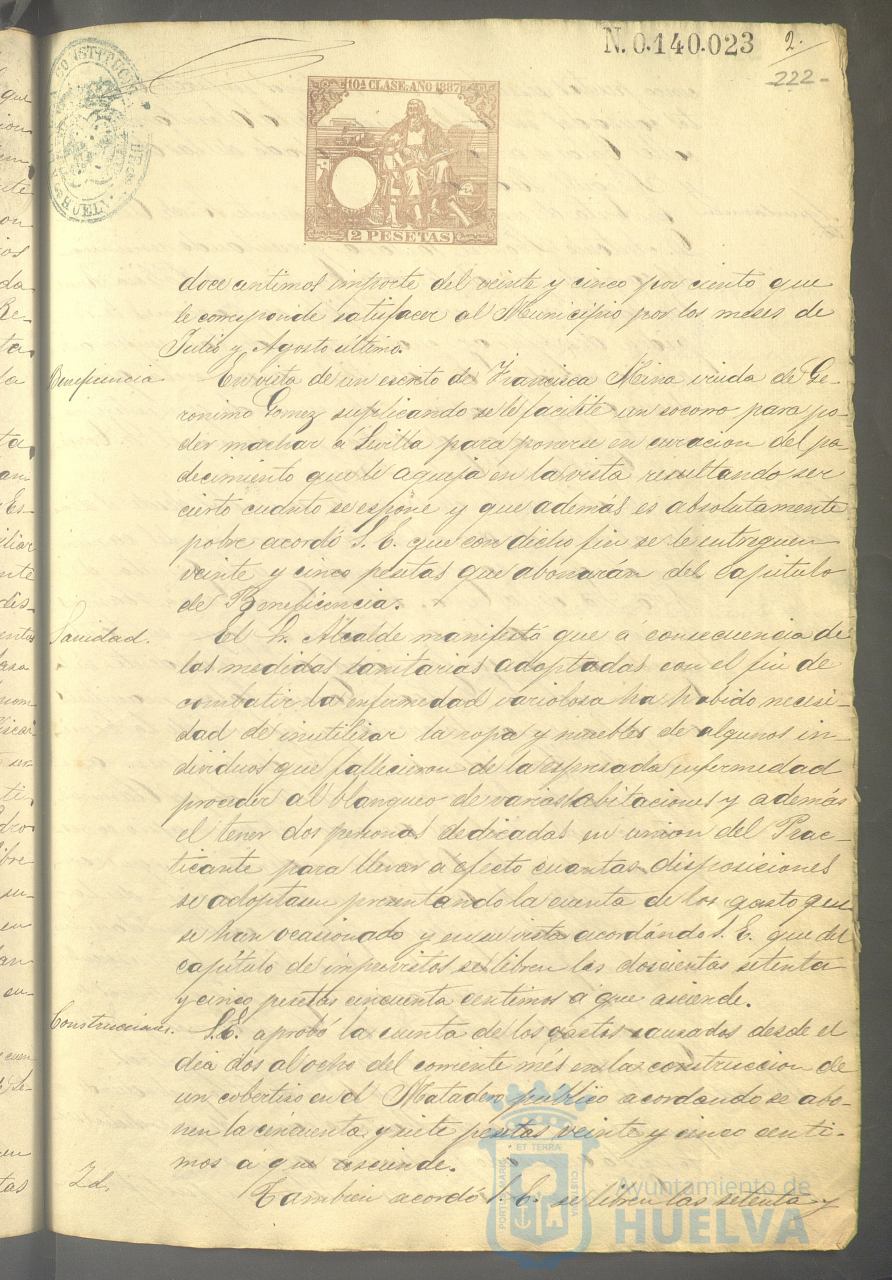 N. 0.140.023
2.
222-
10ª CLASE. AÑO 1887
2 PESETAS
doce centimos importe del veinte y cinco por ciento que
le corresponde satisfacer al Municipio por los meses de
Julio y Agosto último.
Beneficencia
En vista de un escrito de Francisca Mena viuda de Ge-
ronimo Gomez suplicando se le facilite un socorro para po-
der marchar á Sevilla para ponerse en curacion del pa-
decimiento que le aqueja en la vista resultando ser
cierto cuanto se espone y que además es absolutamente
pobre acordó S. E. que con dicho fin se le entreguen
veinte y cinco pesetas que abonarán del Capítulo
de Beneficencia.
Sanidad.
El Sr. Alcalde manifestó que á consecuencia de
las medidas sanitarias adoptadas con el fin de
combatir la enfermedad variolosa ha habido necesi-
dad de inutilisar la ropa y muebles de algunos in-
dividuos que fallecieron de la espresada enfermedad
proceder al blanqueo de varias abitaciones y además
el tener dos personas dedicadas en union del Prac-
ticante para llevar a efecto cuantas disposiciones
se adoptasen presentando la cuenta de los gasto que
se han ocasionado y en su vista acordándo S. E. que del
capítulo de imprevistos se libren las doscientas setenta
y cinco pesetas cincuenta centimos á que asciende.
Construcciones.
S. E. aprobó la cuenta de los gastos causados desde el
dia dos al ocho del corriente més en la construccion de
un cobertiso en el Matadero publico acordando se abo-
nen la cincuenta y siete pesetas veinte y cinco centi-
mos á que asciende.
Id.
Tambien acordó S. E. se libren las setenta y
PORTUS MARIS ET TERRAE CUSTODIA
Ayuntamiento de
HUELVA